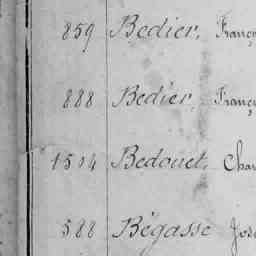 859 Bedier, Franç
888 Bedier, Franç
1504 Bedouet, Char
588 Bégasse José